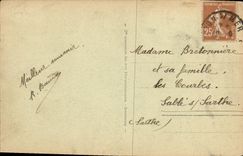 Meilleur souvenir
Madame Bretonnière
et sa famille
les Courbes
Sablé s/ Sarthe
(Sarthe)
25